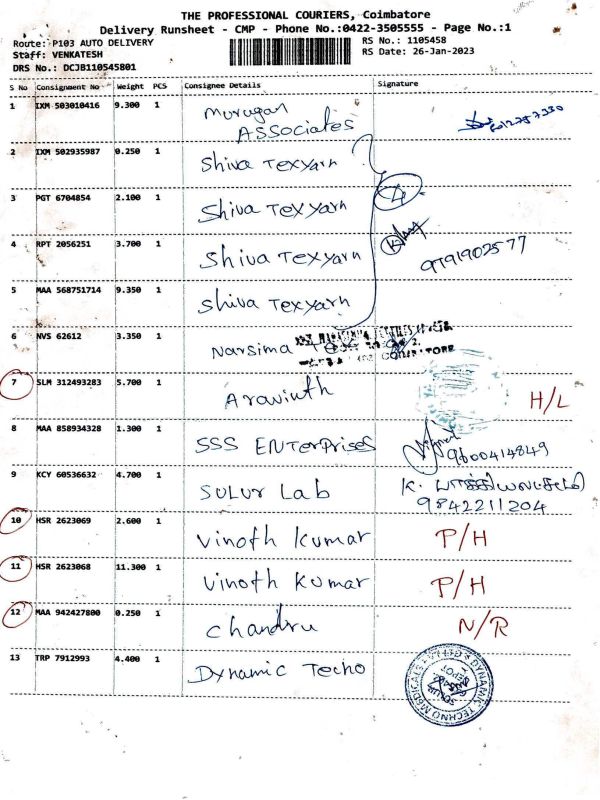 THE PROFESSIONAL COURIERS, Coimbatore
Delivery Runsheet - CMP - Phone No.:0422-3505555 - Page No.:1
Route: P103 AUTO DELIVERY
RS No.: 1105458
Staff: VENKATESH
RS Date: 26-Jan-2023
DRS No.: DCJB110545801
S No Consignment No Weight PCS Consignee Details Signature
1 IXM 503010416 9.300 1 Murugan
ASSociates
2 IXM 502935987 0.250 1 Shiva Texyarn
3 PGT 6704854 2.100 1 Shiva Texyarn 4
4 RPT 2056251 3.700 1 Shiva Texyarn 9791902577
5 MAA 568751714 9.350 1 Shiva Texyarn
6 NVS 62612 3.350 1 Narsima
7 SLM 312493283 5.700 1 Aravinth H/L
8 MAA 858934328 1.300 1 SSS ENTerprises 9600414849
9 KCY 60536632 4.700 1 Sulur Lab K.
9842211204
10 HSR 2623069 2.600 1 Vinoth Kumar P/H
11 HSR 2623068 11.300 1 Vinoth Kumar P/H
12 MAA 942427800 0.250 1 Chandru N/R
13 TRP 7912993 4.400 1 Dynamic Techo
DYNAMIC TECHNO MEDICALS